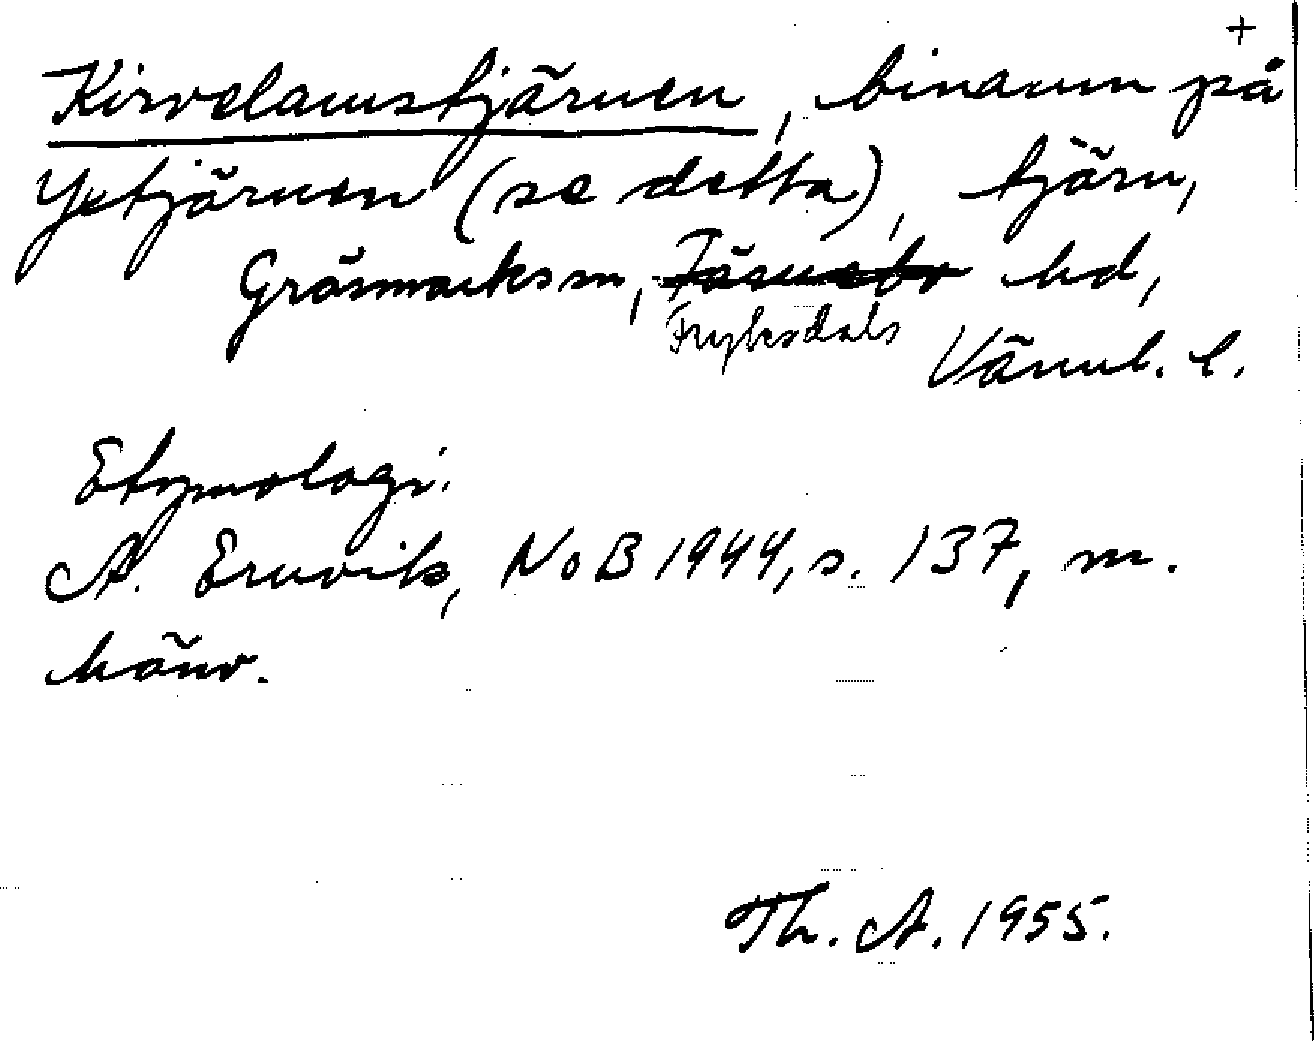 +
Kirvelamstjärnen, binamn på
Yxtjärnen (se detta), tjärn,
Gräsmarks sn, Jösse hd,
Fryksdals
Värml. l.
Etymologi.
A. Ernvik, NoB 1944, s. 137, m.
hänv.
Th. A. 1955.